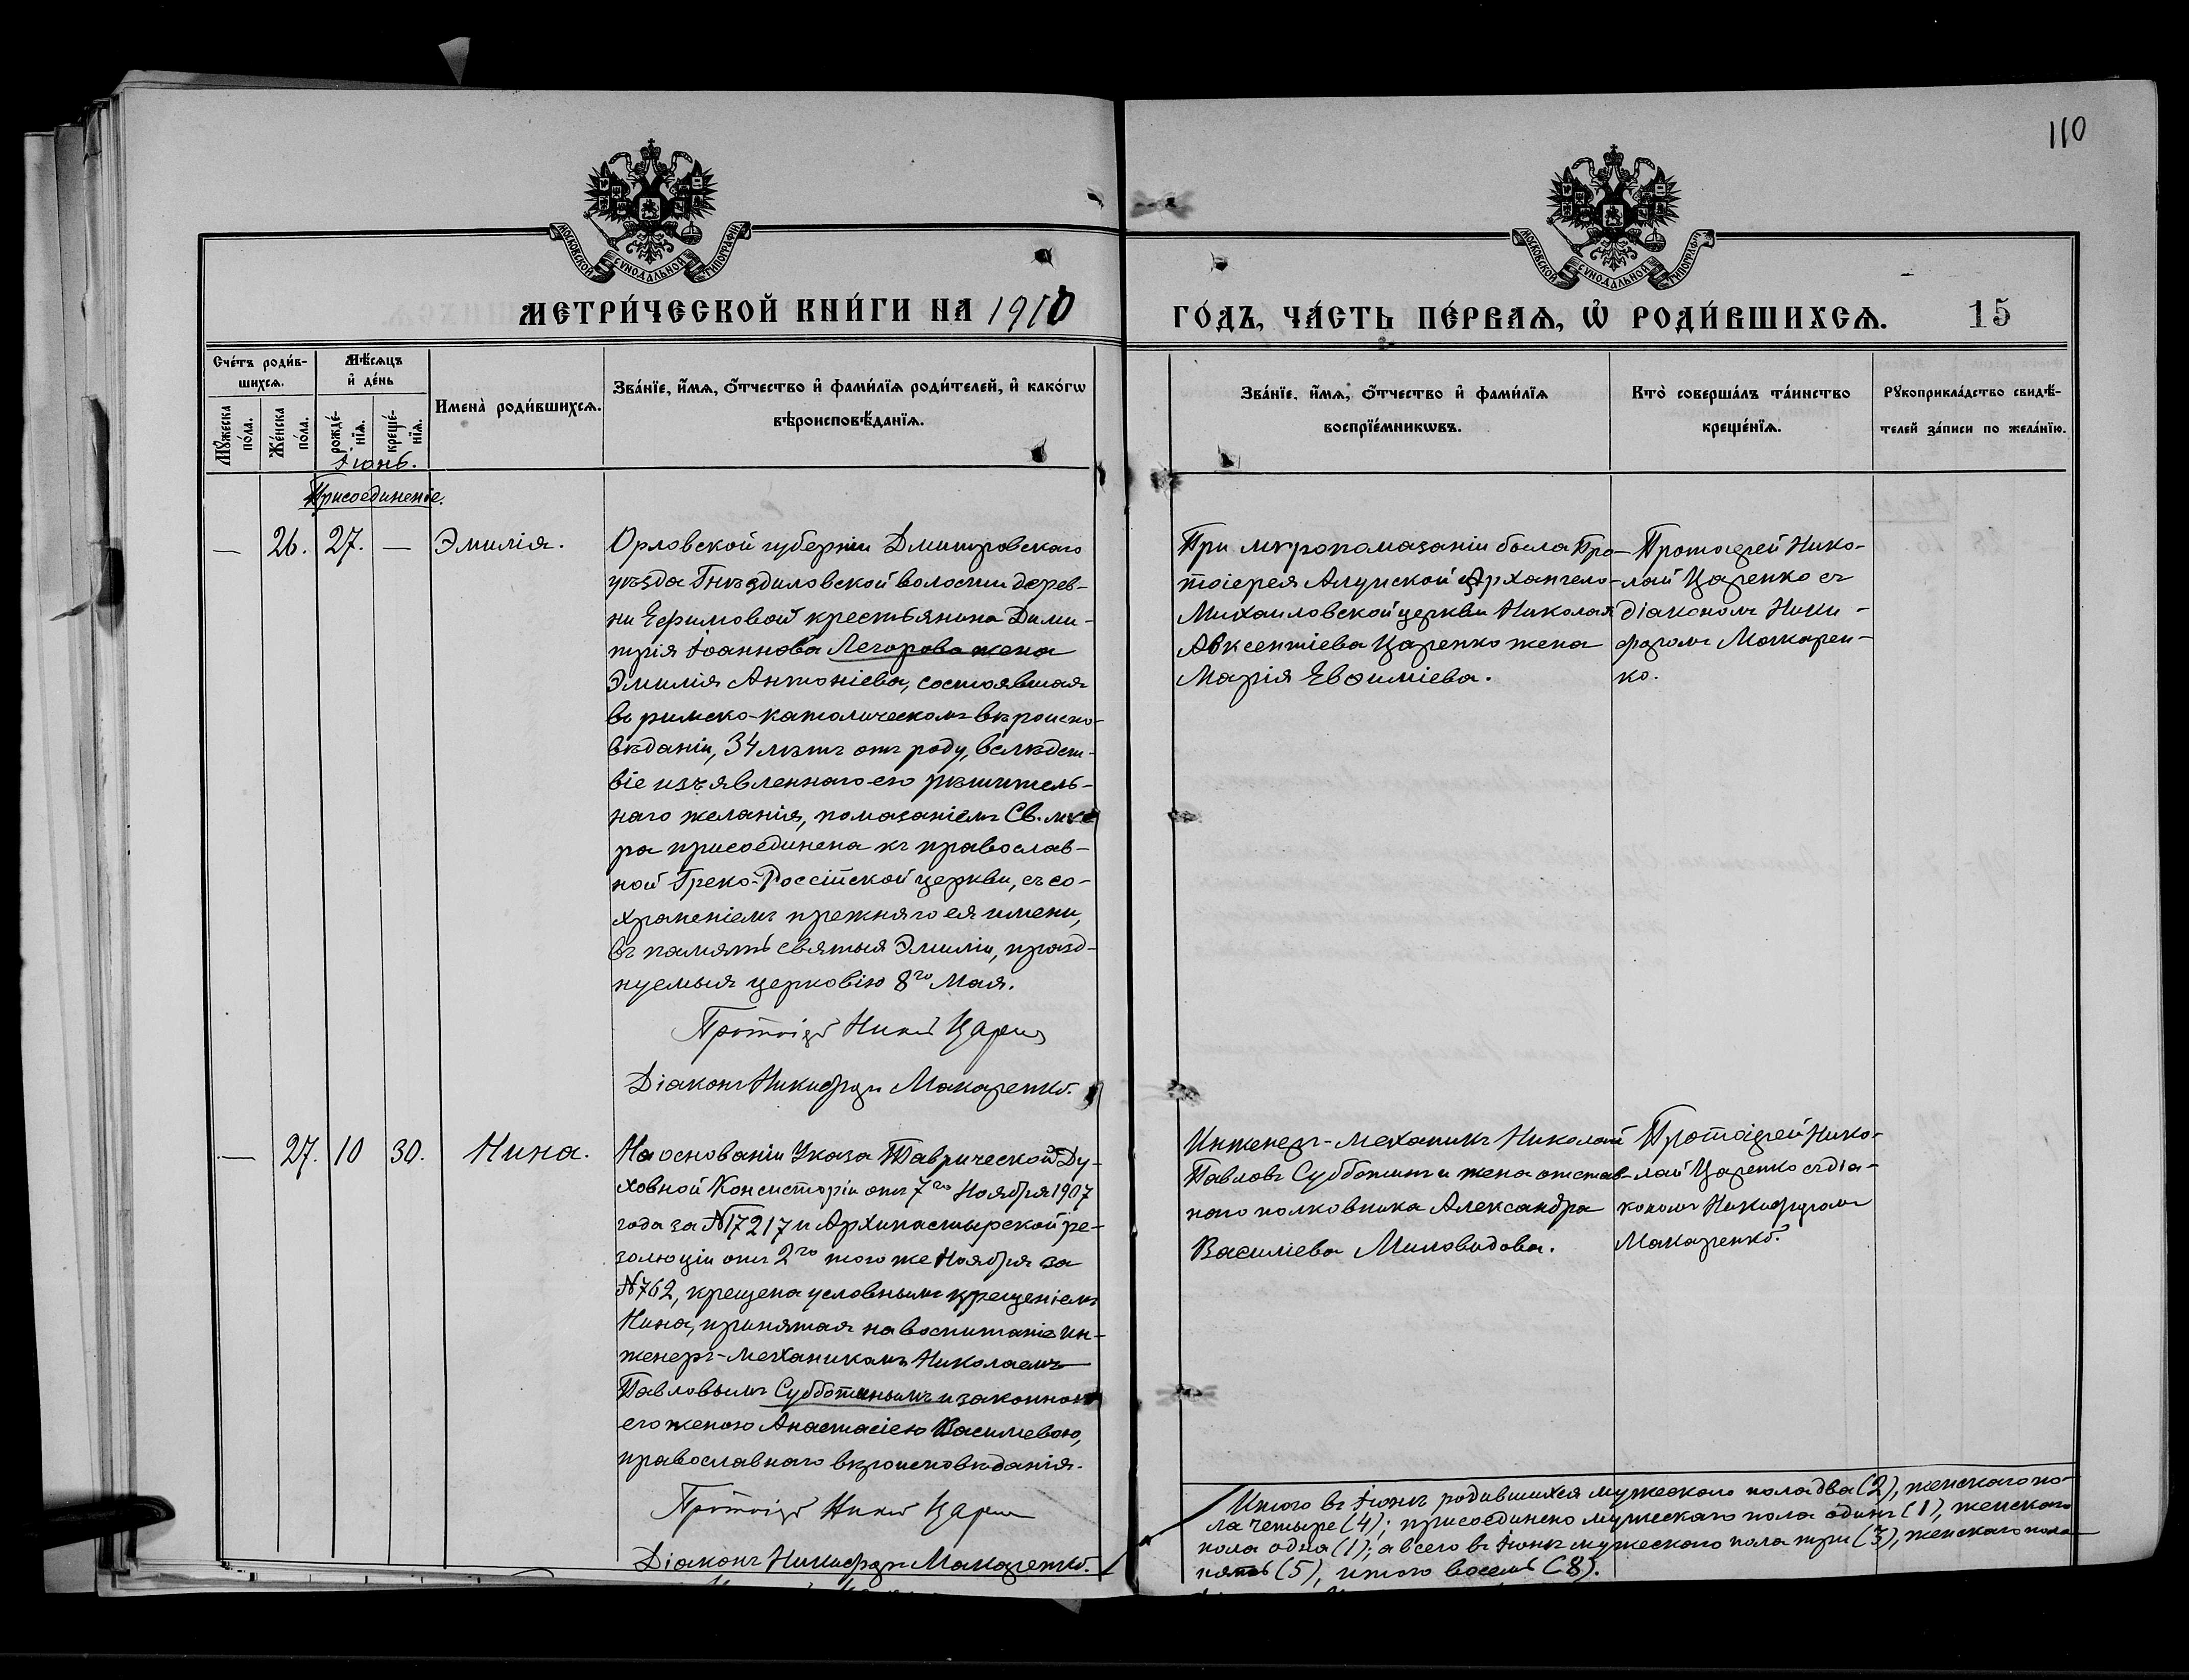 110
МОСКОВСКОЙ СѴНОДАЛЬНОЙ ТИПОГРАФІИ
МОСКОВСКОЙ СѴНОДАЛЬНОЙ ТИПОГРАФІИ
МЕТРИ́ЧЕСКОЙ КНИ́ГИ НА 1910
ГО́ДЪ, ЧА́СТЬ ПЕ́РВАѦ, Ѡ҆ РОДИ́ВШИХСѦ. 15
Сче́тъ роди́в-
шихсѧ.
Мꙋ́жеска по́ла.
Же́нска по́ла.
Мѣ́сѧцъ
и҆ де́нь
рожде́-
нїѧ.
креще́-
нїѧ.
Имена̀ роди́вшихсѧ.
Зва́нїе, и҆́мѧ, ѻ҆́тчество и҆ фами́лїѧ роди́телей, и҆ како́гѡ
вѣроисповѣ́данїѧ.
Зва́нїе, и҆́мѧ, ѻ҆́тчество и҆ фами́лїѧ
воспрїе́мникѡвъ.
Кто̀ соверша́лъ та́инство
креще́нїѧ.
Рꙋкоприкла́дство свидѣ́-
телей за́писи по жела́нїю.
Іюнь.
Присоединеніе.
— 26. 27. — Эмилія.
Орловской губерніи Дмитровскаго
уѣзда Гнѣздиловской волости дерев-
ни Ефимовой крестьянина Дими-
трія Іоаннова Легорова жена
Эмилія Антоніева, состоявшая
въ римско-католическомъ вѣроиспо-
вѣданіи, 34 лѣтъ отъ роду, вслѣдст-
віе изъявленнаго ею рѣшитель-
наго желанія, помазаніемъ Св. мѵ
ра присоединена къ православ-
ной Греко-Россійской церкви, съ со-
храненіемъ прежняго ея имени,
въ память святыя Эмиліи, празд-
нуемыя церковію 8го Мая.
Протоіер Никол Царен
Діаконъ Никифоръ Макаренко.
При мѵропомазаніи была Про-
тоіерея Алупской Архангело-
Михаиловской церкви Николая
Авксентіева Царенко жена
Марія Евѳиміева.
Протоіерей Нико-
лай Царенко съ
діакономъ Ники-
форомъ Макарен-
ко.
— 27. 10 30. Нина.
На основаніи Указа Таврической Ду-
ховной Консисторіи отъ 7го Ноября 1907
года за №17217 и Архипастырской ре-
золюціи отъ 2го того же Ноября за
№762, крещена условнымъ крещеніемъ
Нина, принятая на воспитаніе ин-
женеръ-механикомъ Николаемъ
Павловымъ Субботинымъ и законною
его женою Анастасіею Василіевою,
православнаго вѣроисповѣданія.
Протоіер Никол Царен
Діаконъ Никифоръ Макаренко.
Инженеръ-механикъ Николай
Павловъ Субботинъ и жена отстав-
наго полковника Александра
Василіева Миловидова.
Протоіерей Нико-
лай Царенко съ діа-
кономъ Никифоромъ
Макаренко.
Итого въ Іюнѣ родившихся мужескаго пола два (2), женскаго по-
ла четыре (4); присоединено мужескаго пола одинъ (1), женскаго
пола одна (1); а всего въ Іюнѣ мужескаго пола три (3), женскаго пола
пять (5), итого восемь (8).